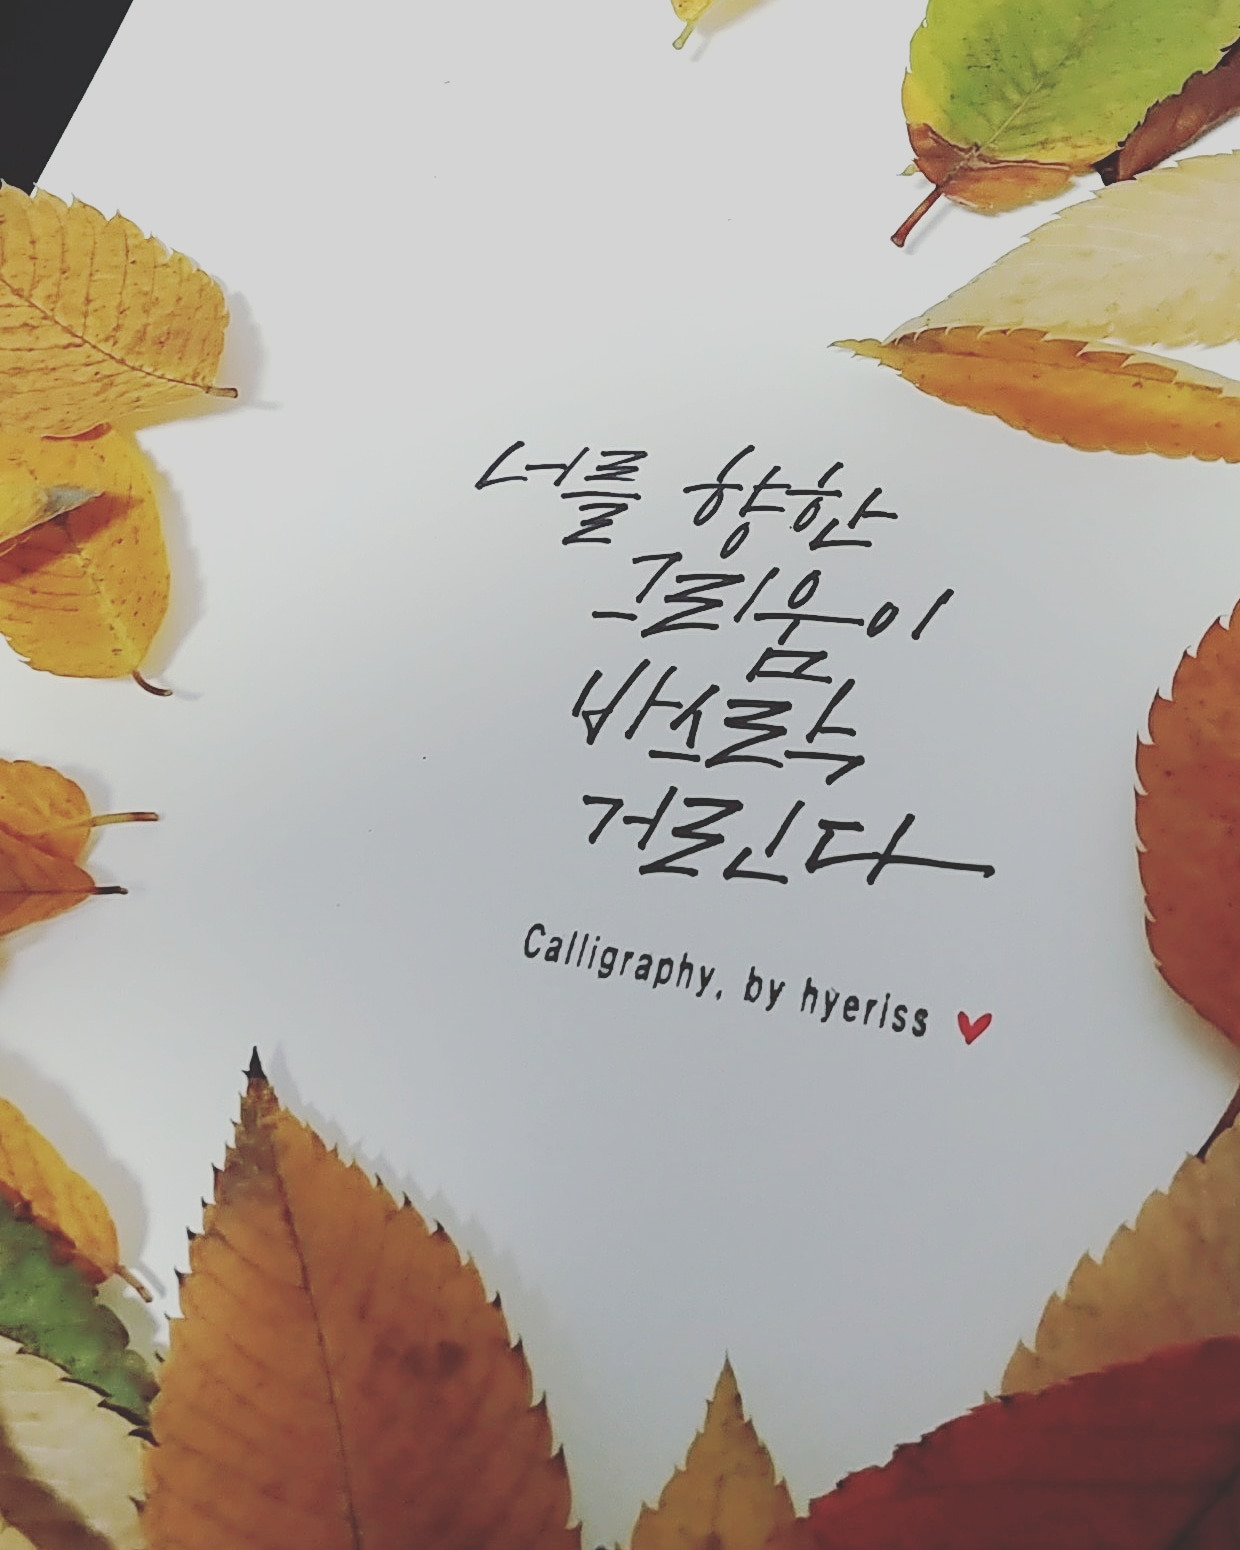 너를 향한
그리움이
바스락
거린다
Calligraphy, by hyeriss ♥